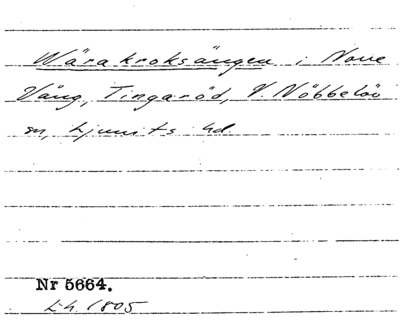 Wärakroksängen i Norre
Vång, Tingaröd, V. Nöbbelöv
sn, Ljunits hd.
Nr 5664.
Lh. 1805